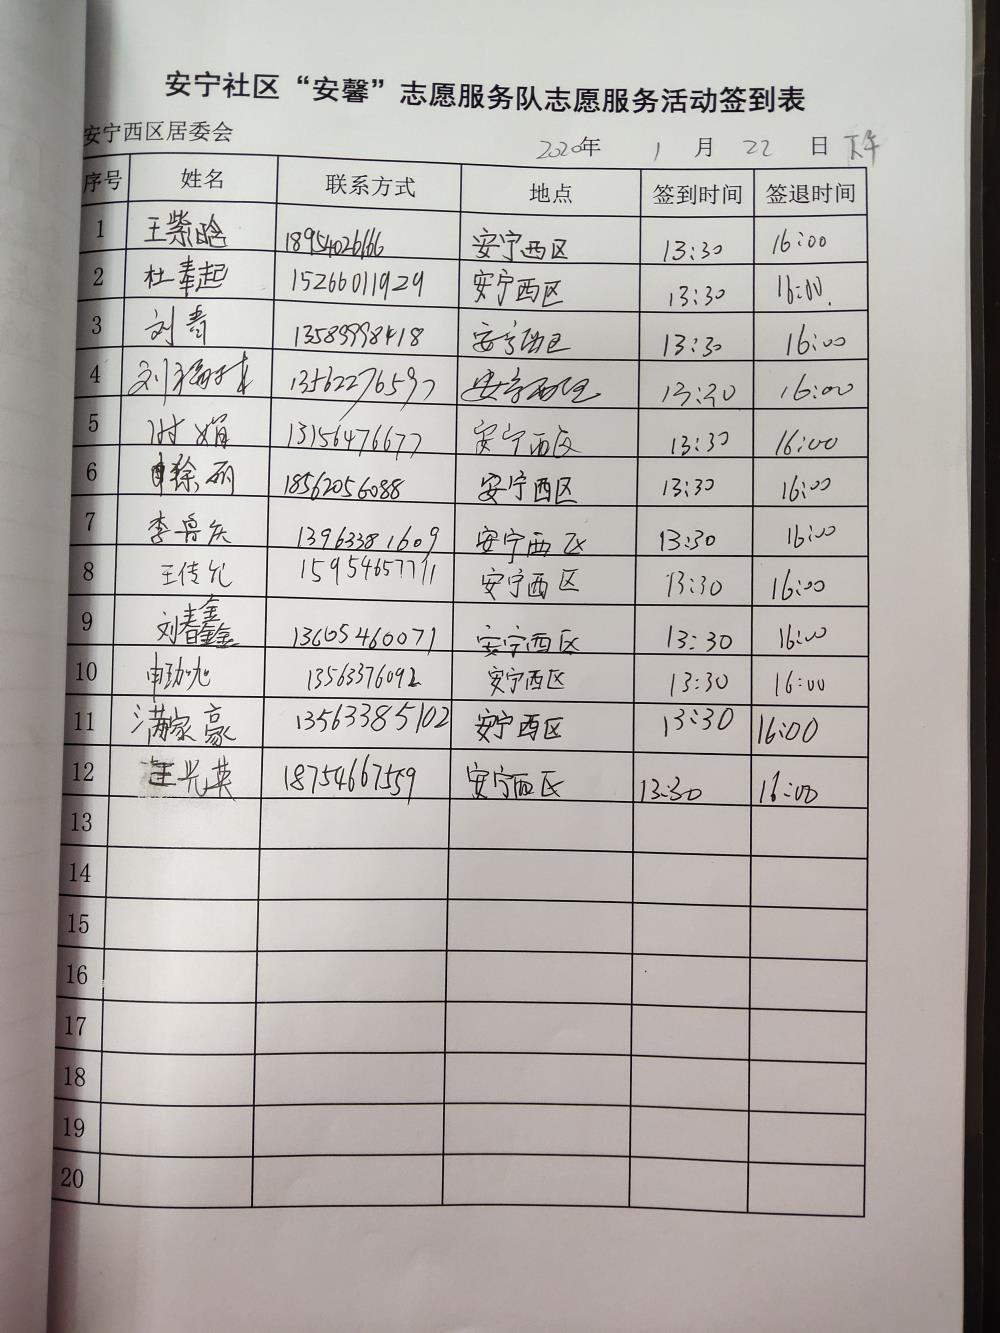 安宁社区“安馨”志愿服务队志愿服务活动签到表
安宁西区居委会 2020年 1 月 22 日 下午
序号 姓名 联系方式 地点 签到时间 签退时间
1 王紫晗 18954026166 安宁西区 13:30 16:00
2 杜奉起 15266011929 安宁西区 13:30 16:00.
3 刘青 13589998418 安宁西区 13:30 16:00
4 刘 13562276597 安宁西区 13:30 16:00
5 时娟 13156476677 安宁西区 13:30 16:00
6 徐丽 18562056088 安宁西区 13:30 16:00
7 李鲁庆 13963381609 安宁西区 13:30 16:00
8 王传允 15954657711 安宁西区 13:30 16:00
9 刘春鑫 13605460071 安宁西区 13:30 16:00
10 申 13563376092 安宁西区 13:30 16:00
11 满家豪 13563385102 安宁西区 13:30 16:00
12 王兴英 18754667559 安宁西区 13:30 16:00
13
14
15
16
17
18
19
20